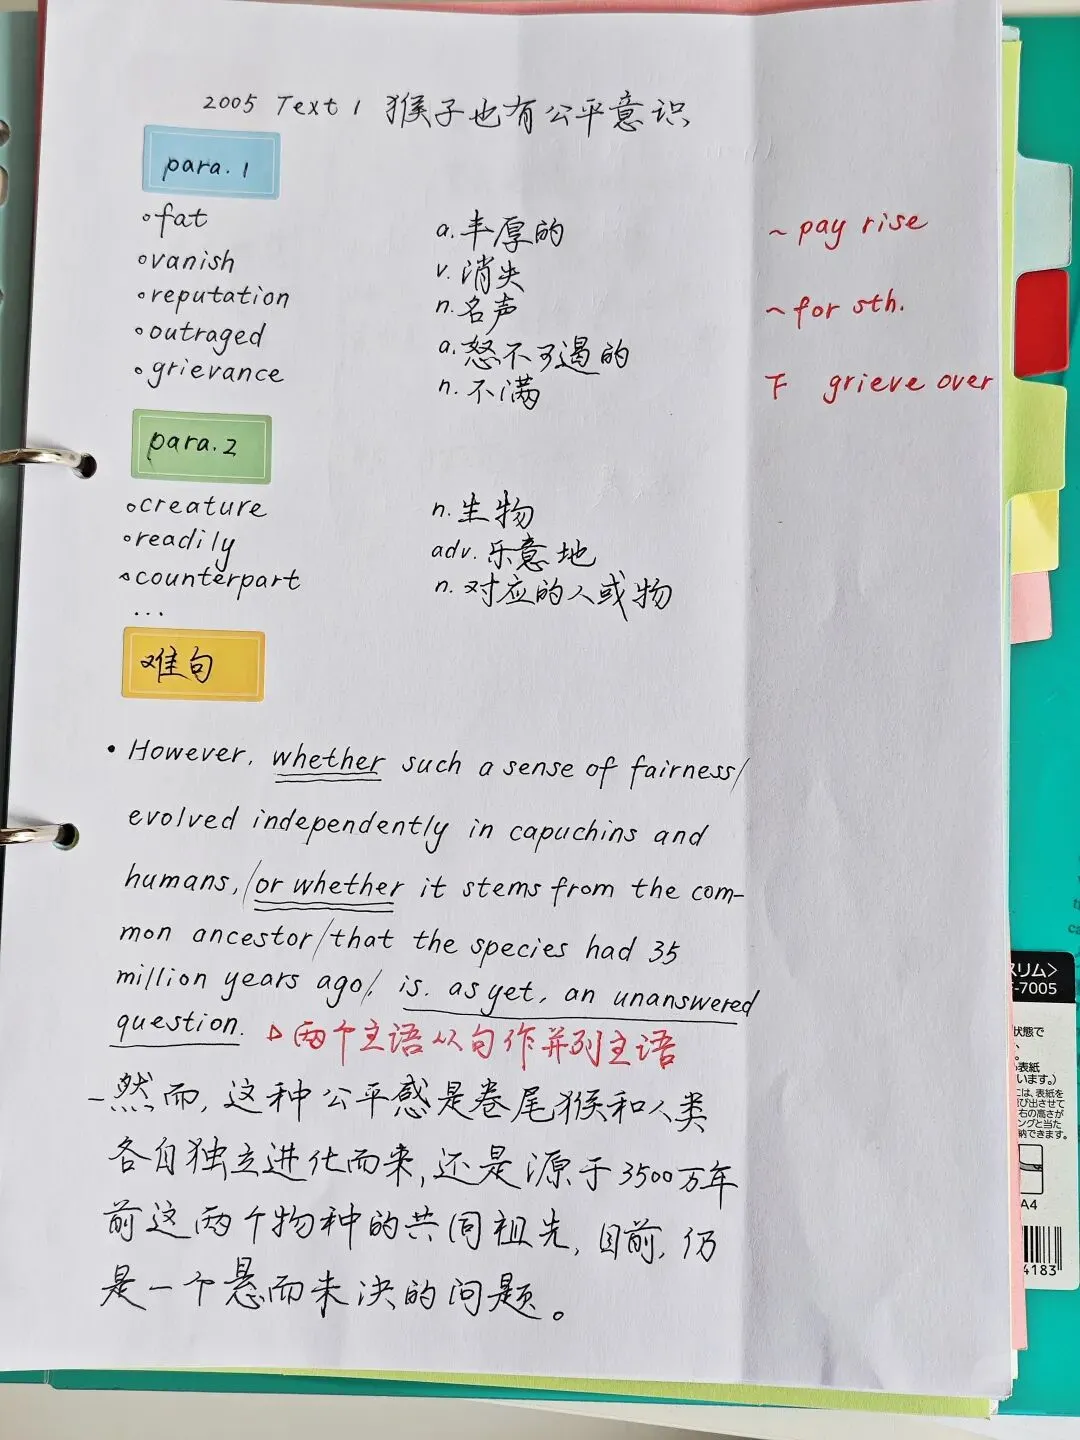 2005 Text 1 猴子也有公平意识
para.1
∘fat a.丰厚的 ~ pay rise
∘vanish v.消失
∘reputation n.名声 ~for sth.
∘outraged a.怒不可遏的
∘grievance n.不满 下 grieve over
para.2
∘creature n.生物
∘readily adv.乐意地
∘counterpart n.对应的人或物
...
难句
• However, whether such a sense of fairness/
evolved independently in capuchins and
humans,/or whether it stems from the com-
mon ancestor/that the species had 35
million years ago/, is, as yet, an unanswered
question. ▷两个主语从句作并列主语
-然而,这种公平感是卷尾猴和人类
各自独立进化而来,还是源于3500万年
前这两个物种的共同祖先,目前,仍
是一个悬而未决的问题。
スリム>
F-7005
状態で
表紙
います。)
には、表紙を
び出させて
右の高さが
ングと当た
納できます。
A4
4183